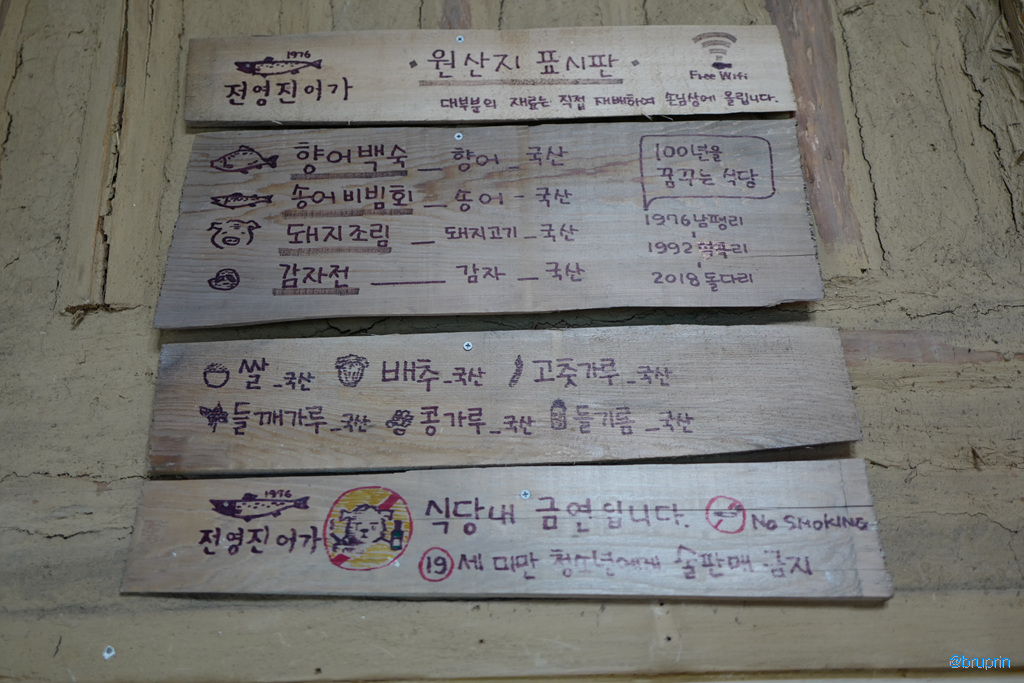 1976
전영진어가
· 원산지 표시판 ·
Free Wifi
대부분의 재료는 직접 재배하여 손님상에 올립니다.
향어백숙 _ 향어 _ 국산
송어비빔회 _ 송어 - 국산
돼지조림 _ 돼지고기 _ 국산
감자전 _ 감자 _ 국산
100년을
꿈꾸는 식당
1976 남평리
1992
2018 돌다리
쌀_국산 배추_국산 고춧가루_국산
들깨가루_국산 콩가루_국산 들기름_국산
1976
전영진어가
식당내 금연입니다.
No SMOKING
19세 미만 청소년에게 술판매 금지
@bruprin